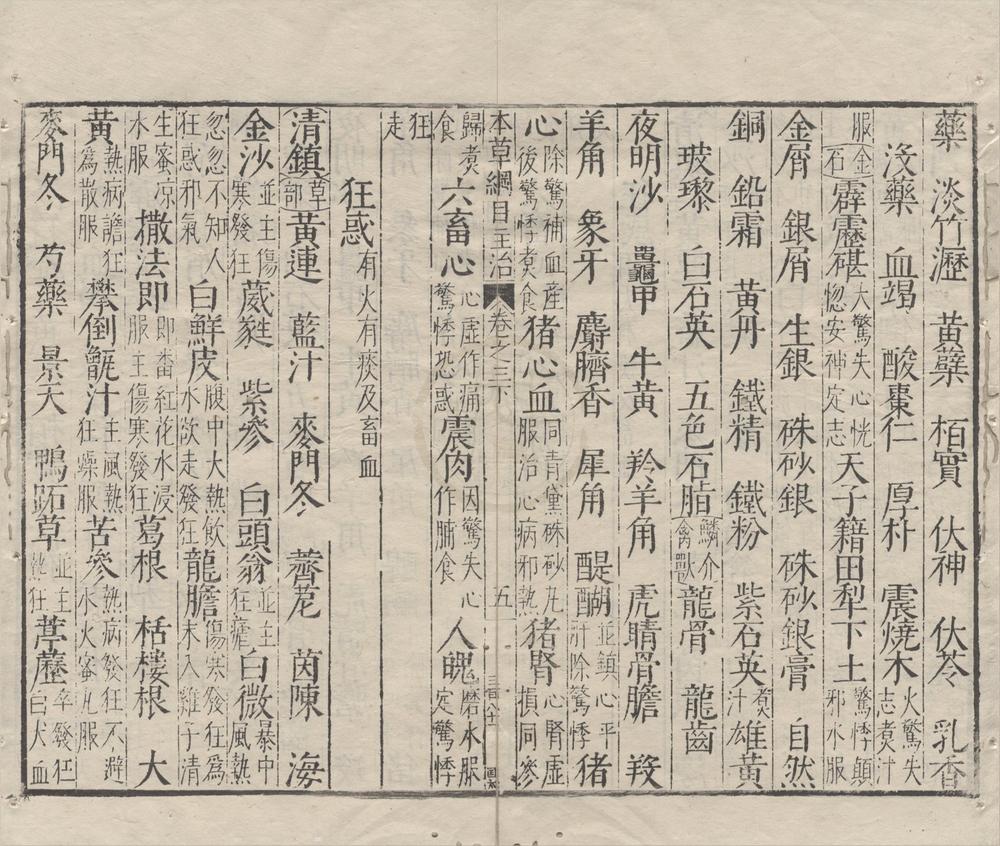 藥 淡竹瀝 黃蘗 栢實 伏神 伏苓 乳香
沒藥 血竭 酸棗仁 厚朴 震燒木火驚失志煮汁
服金石霹靂碪大驚失心恍惚安神定志天子籍田犁下土驚悸顛邪水服
金屑 銀屑 生銀 硃砂銀 硃砂銀膏 自然
銅 鉛霜 黃丹 鐵精 鐵粉 紫石英煮汁雄黃
玻瓈 白石英 五色石脂鱗介禽獸龍骨 龍齒
夜明沙 鼉甲 牛黃 羚羊角 虎睛骨膽 羖
羊角 象牙 麝臍香 犀角 醍醐並鎮心平肝除驚悸猪
心除驚補血產後驚悸煮食猪心血同青黛硃砂丸服治心病邪熱猪腎心腎虛損同參
本草綱目主治 卷之三下 五 三百八十
歸煮食六畜心心虛作痛驚悸恐惑震肉因驚失心作脯食人魄磨水服定驚悸
狂走
狂惑有火有痰及畜血
清鎮草部黃連 藍汁 麥門冬 薺苨 茵陳 海
金沙並主傷寒發狂葳蕤 紫參 白頭翁並主狂瘧白微暴中風熱
忽忽不知人狂惑邪氣白鮮皮腹中大熱飲水欲走發狂龍膽傷寒發狂為末入雞子清
生蜜凉水服撒法即即番紅花水浸服主傷寒發狂葛根 栝樓根 大
黃熱病譫狂為散服攀倒甑汁主風熱狂躁服苦參熱病發狂不避水火蜜丸服
麥門冬 芍藥 景天 鴨跖草並主熱狂葶藶卒發狂白犬血